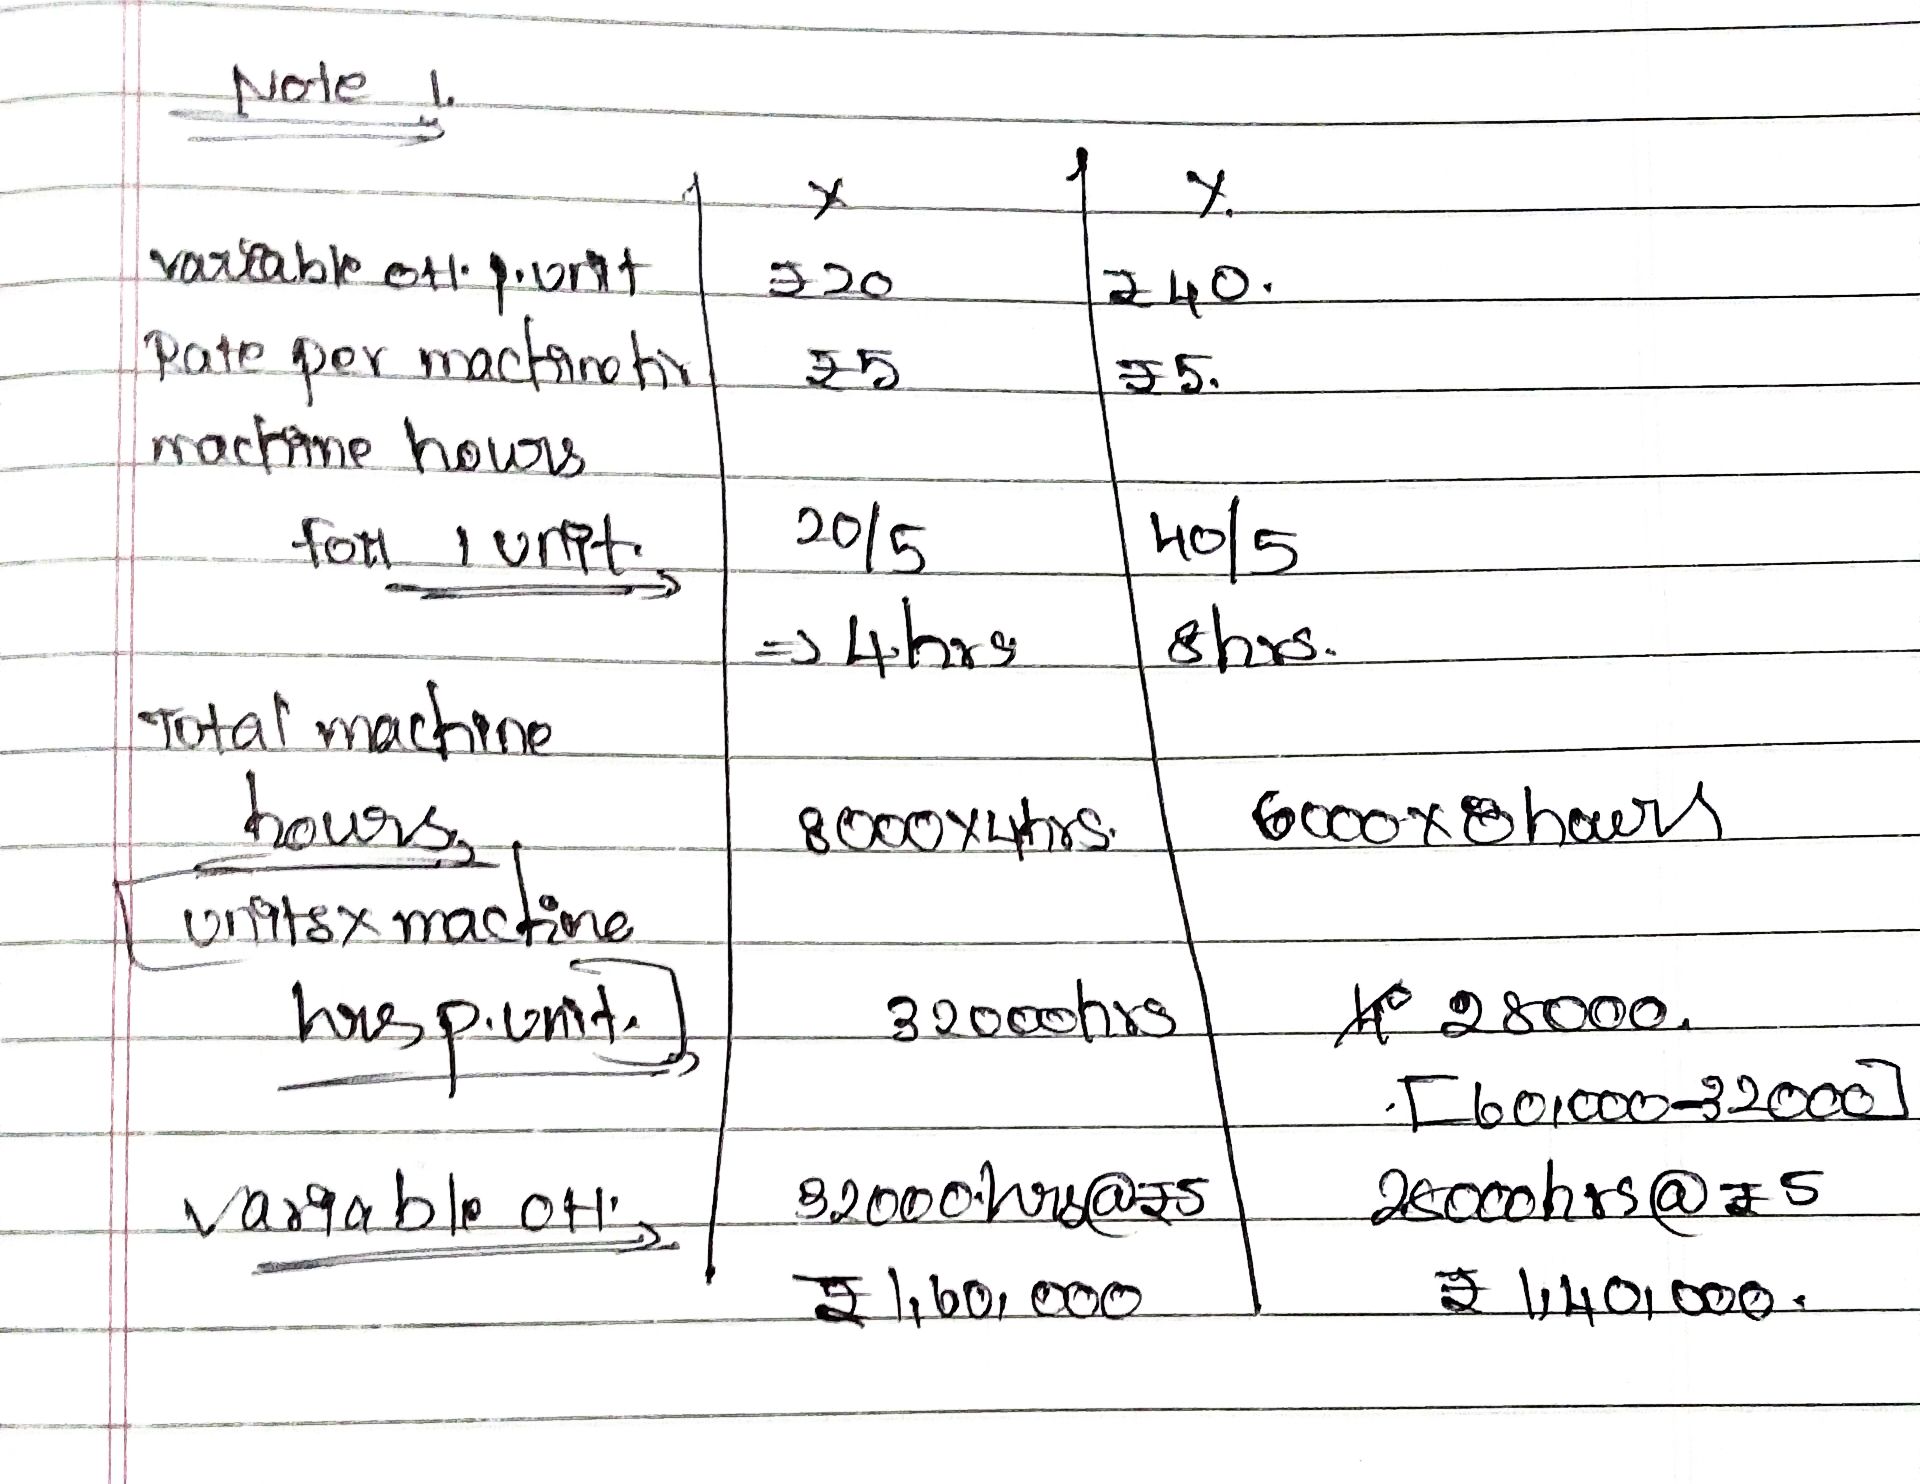 Note 1.
X Y.
variable OH. p.unit ₹20 ₹40.
Rate per machine hr ₹5 ₹5.
machine hours
for 1 unit. 20/5 40/5
⇒ 4 hrs 8hrs.
Total machine
hours 8000x4hrs. 6000x8hours
[units x machine
hrs p.unit.] 32000hrs 28000.
[60,000-32000]
Variable OH. 32000.hrs@₹5 28000hrs@₹5
₹1,60,000 ₹1,40,000.